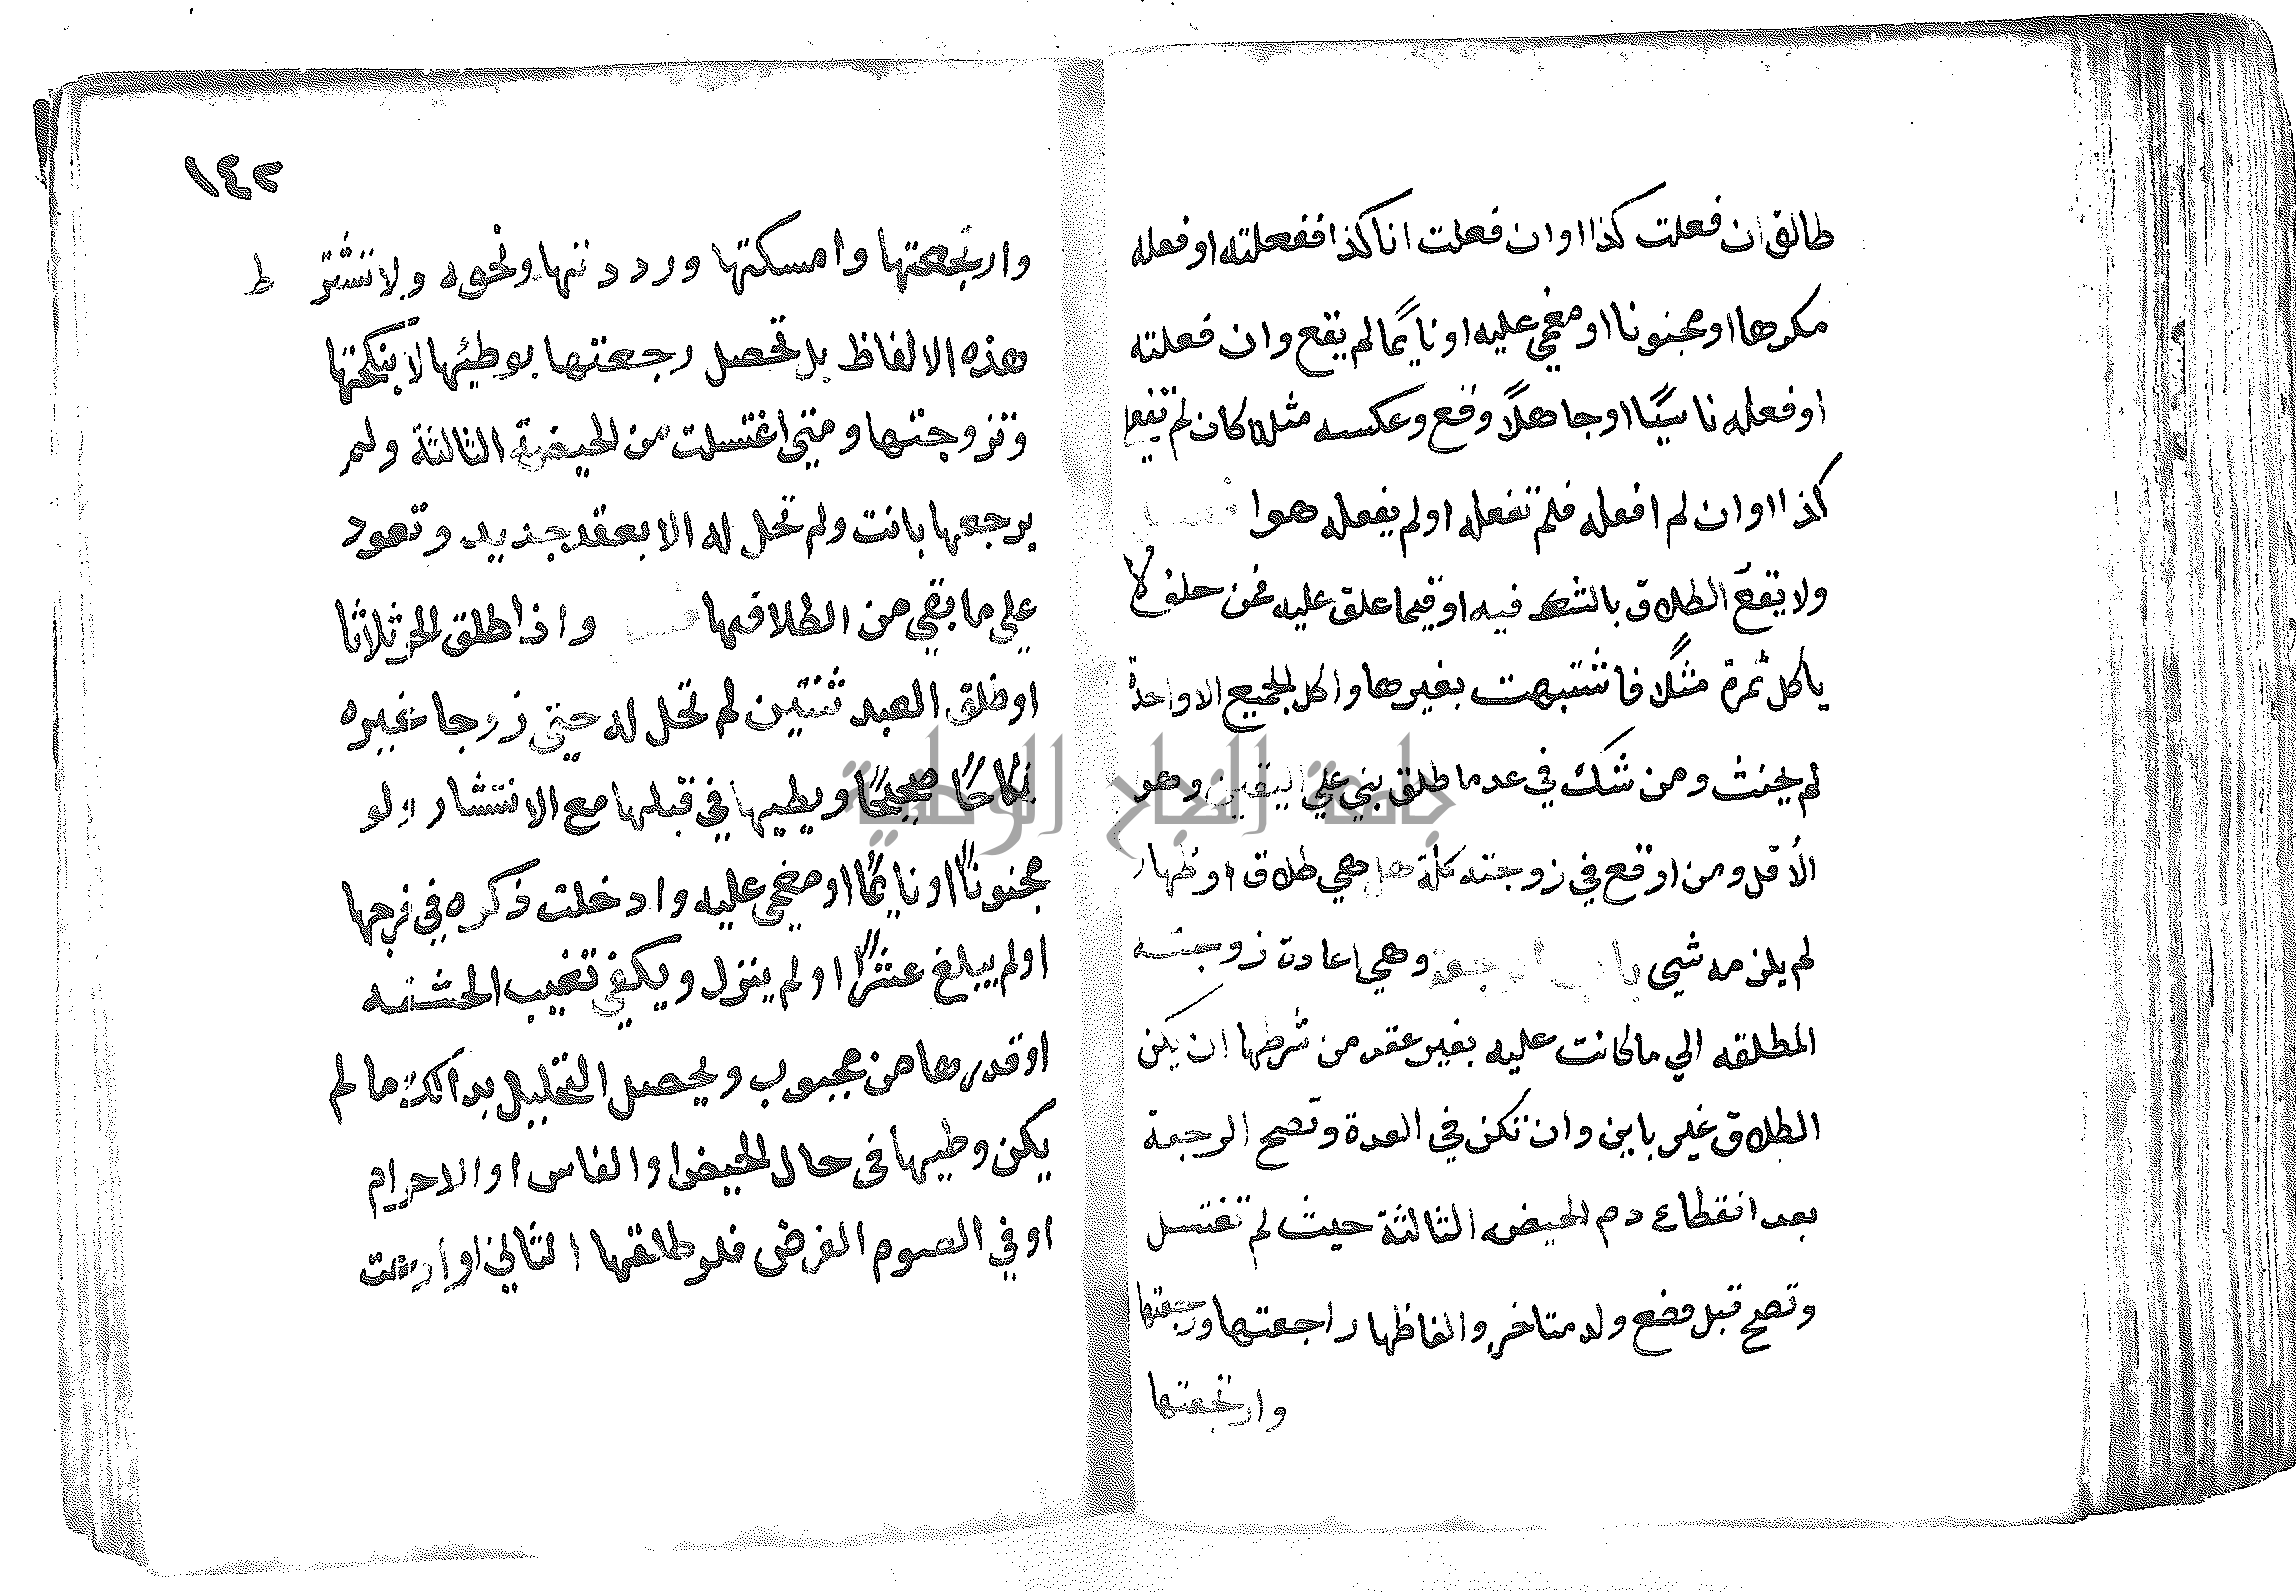 طالق ان فعلت كذا اوان فعلت انا كذا ففعلته او فعله
مكرها او مجنونا او مغمي عليه او نايمًا لم يقع وان فعلته
او فعله ناسيًا او جاهلاً وقع وعكسه مثله كان لم تفعل
كذا اوان لم افعله فلم تفعله اولم يفعله هوا
ولا يقع الطلاق بالشك فيه او فيما علق عليه فمن حلف لا
ياكل ثمرة مثلًا فاشتبهت بغيرها واكل الجميع الا واحدة
لم يحنث ومن شك في عدد ما طلق بني علي اليقين وهو
الأقل ومن اوقع في زوجته كلمة هل هي طلاق او ظهار
لم يلزمه شيى باب الرجعة وهي اعادة زوجته
المطلقه الي ما كانت عليه بغير عقد من شرطها ان يكن
الطلاق غير باين وان تكن في العدة وتصح الرجعة
بعد انقطاع دم الحيضه الثالثة حيث لم تغتسل
وتصح قبل وضع ولد متاخر والفاظها راجعتها ورجعتها
وارتجعتها
١٤٢
وارتجعتها وامسكتها ورددتها ونحوه ولا تشتر ط
هذه الالفاظ بل تحصل رجعتها بوطيئها لا بنكحتها
وتزوجتها ومتي اغتسلت من الحيضة الثالثة ولم
يرجعها بانت ولم تحل له الا بعقد جديد وتعود
علي ما بقي من الطلاقها واذا طلق الحر ثلاثا
او طلق العبد ثنتين لم تحل له حتي زوجا غيره
نكاحًا صحيحًا ويطيها في قبلها مع الانتشار ولو
مجنونًا او نايمًا او مغمي عليه وادخلت ذكره في فرجها
اولم يبلغ عشرًا اولم ينزل ويكفي تغيب الحشفه
او قدرها من مجبوب ويحصل التحليل بذالك ما لم
يكن وطيها في حال الحيض او الفاس او الاحرام
او في الصوم الفرض فلو طلقها الثاني او ادعت
جامعة النجاح الوطنية